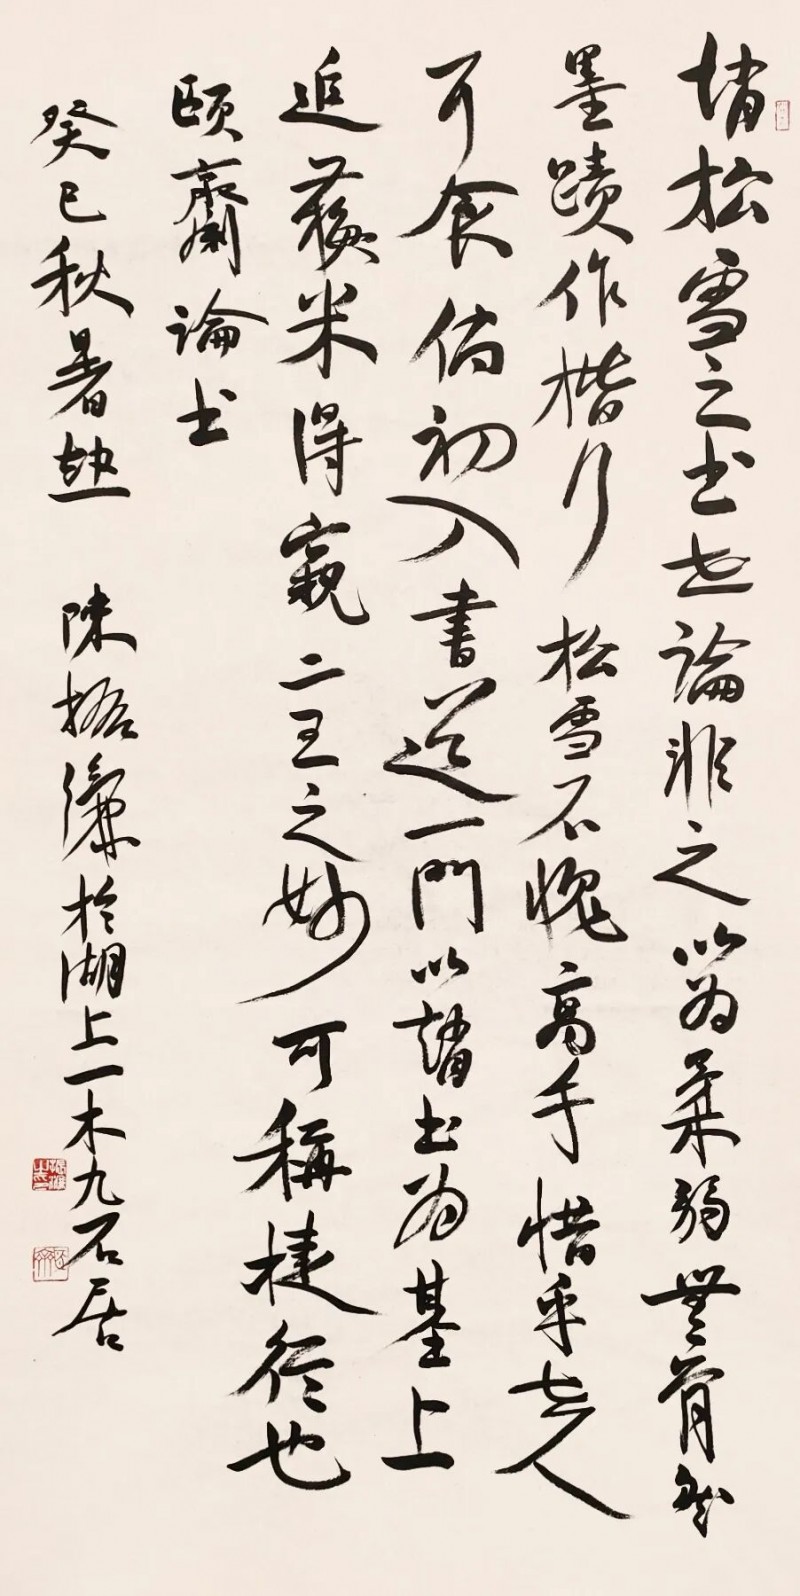 趙松雪之书世論非之以为柔弱無骨然
墨蹟作楷行松雪不愧高手惜乎世人
耳食倘初入書道一門以趙书为基上
追蘇米得窺二王之妙可稱捷徑也
頤齋論书
癸巳秋暑热 陳振濂於湖上一木九石居